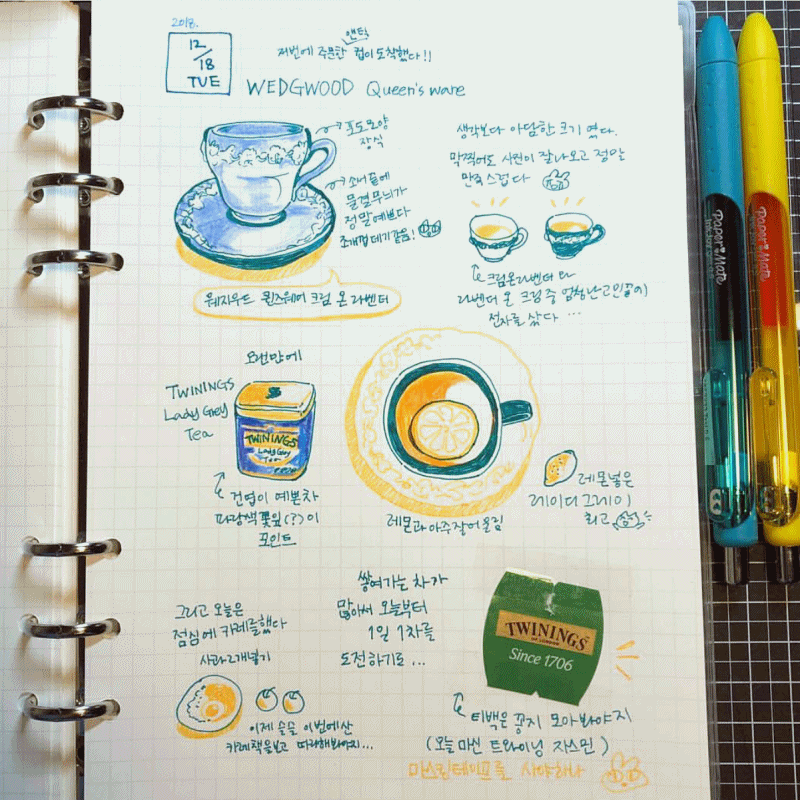 2018.
12/18
TUE
앤틱
저번에 주문한 컵이 도착했다!!
WEDGWOOD Queen's ware
포도모양
장식
소서 끝에
물결무늬가
정말 예쁘다
조개껍데기같음!
웨지우드 퀸즈웨어 크림 온 라벤더
생각보다 아담한 크기였다.
막찍어도 사진이 잘나오고 정말
만족스럽다
크림온라벤더 와
라벤더 온 크림 중 엄청난 고민끝에
전자를 샀다 ...
오랜만에
TWININGS
Lady Grey
Tea
TWININGS
Lady Grey
Tea
건엽이 예쁜차
파랑색 꽃잎(?)이
포인트
레몬과 아주 잘어울림
레몬넣은
레이디 그레이
최고
그리고 오늘은
점심에 카레를했다
사과 2개넣기
이제 슬슬 이번에산
카레책을보고 따라해봐야지...
쌓여가는 차가
많아서 오늘부터
1일 1차를
도전하기로 ...
TWININGS
OF LONDON
Since 1706
티백은 꽁지 모아봐야지
(오늘 마신 트와이닝 자스민)
마스킹테이프를 사야하나
Paper Mate
InkJoy
Paper Mate